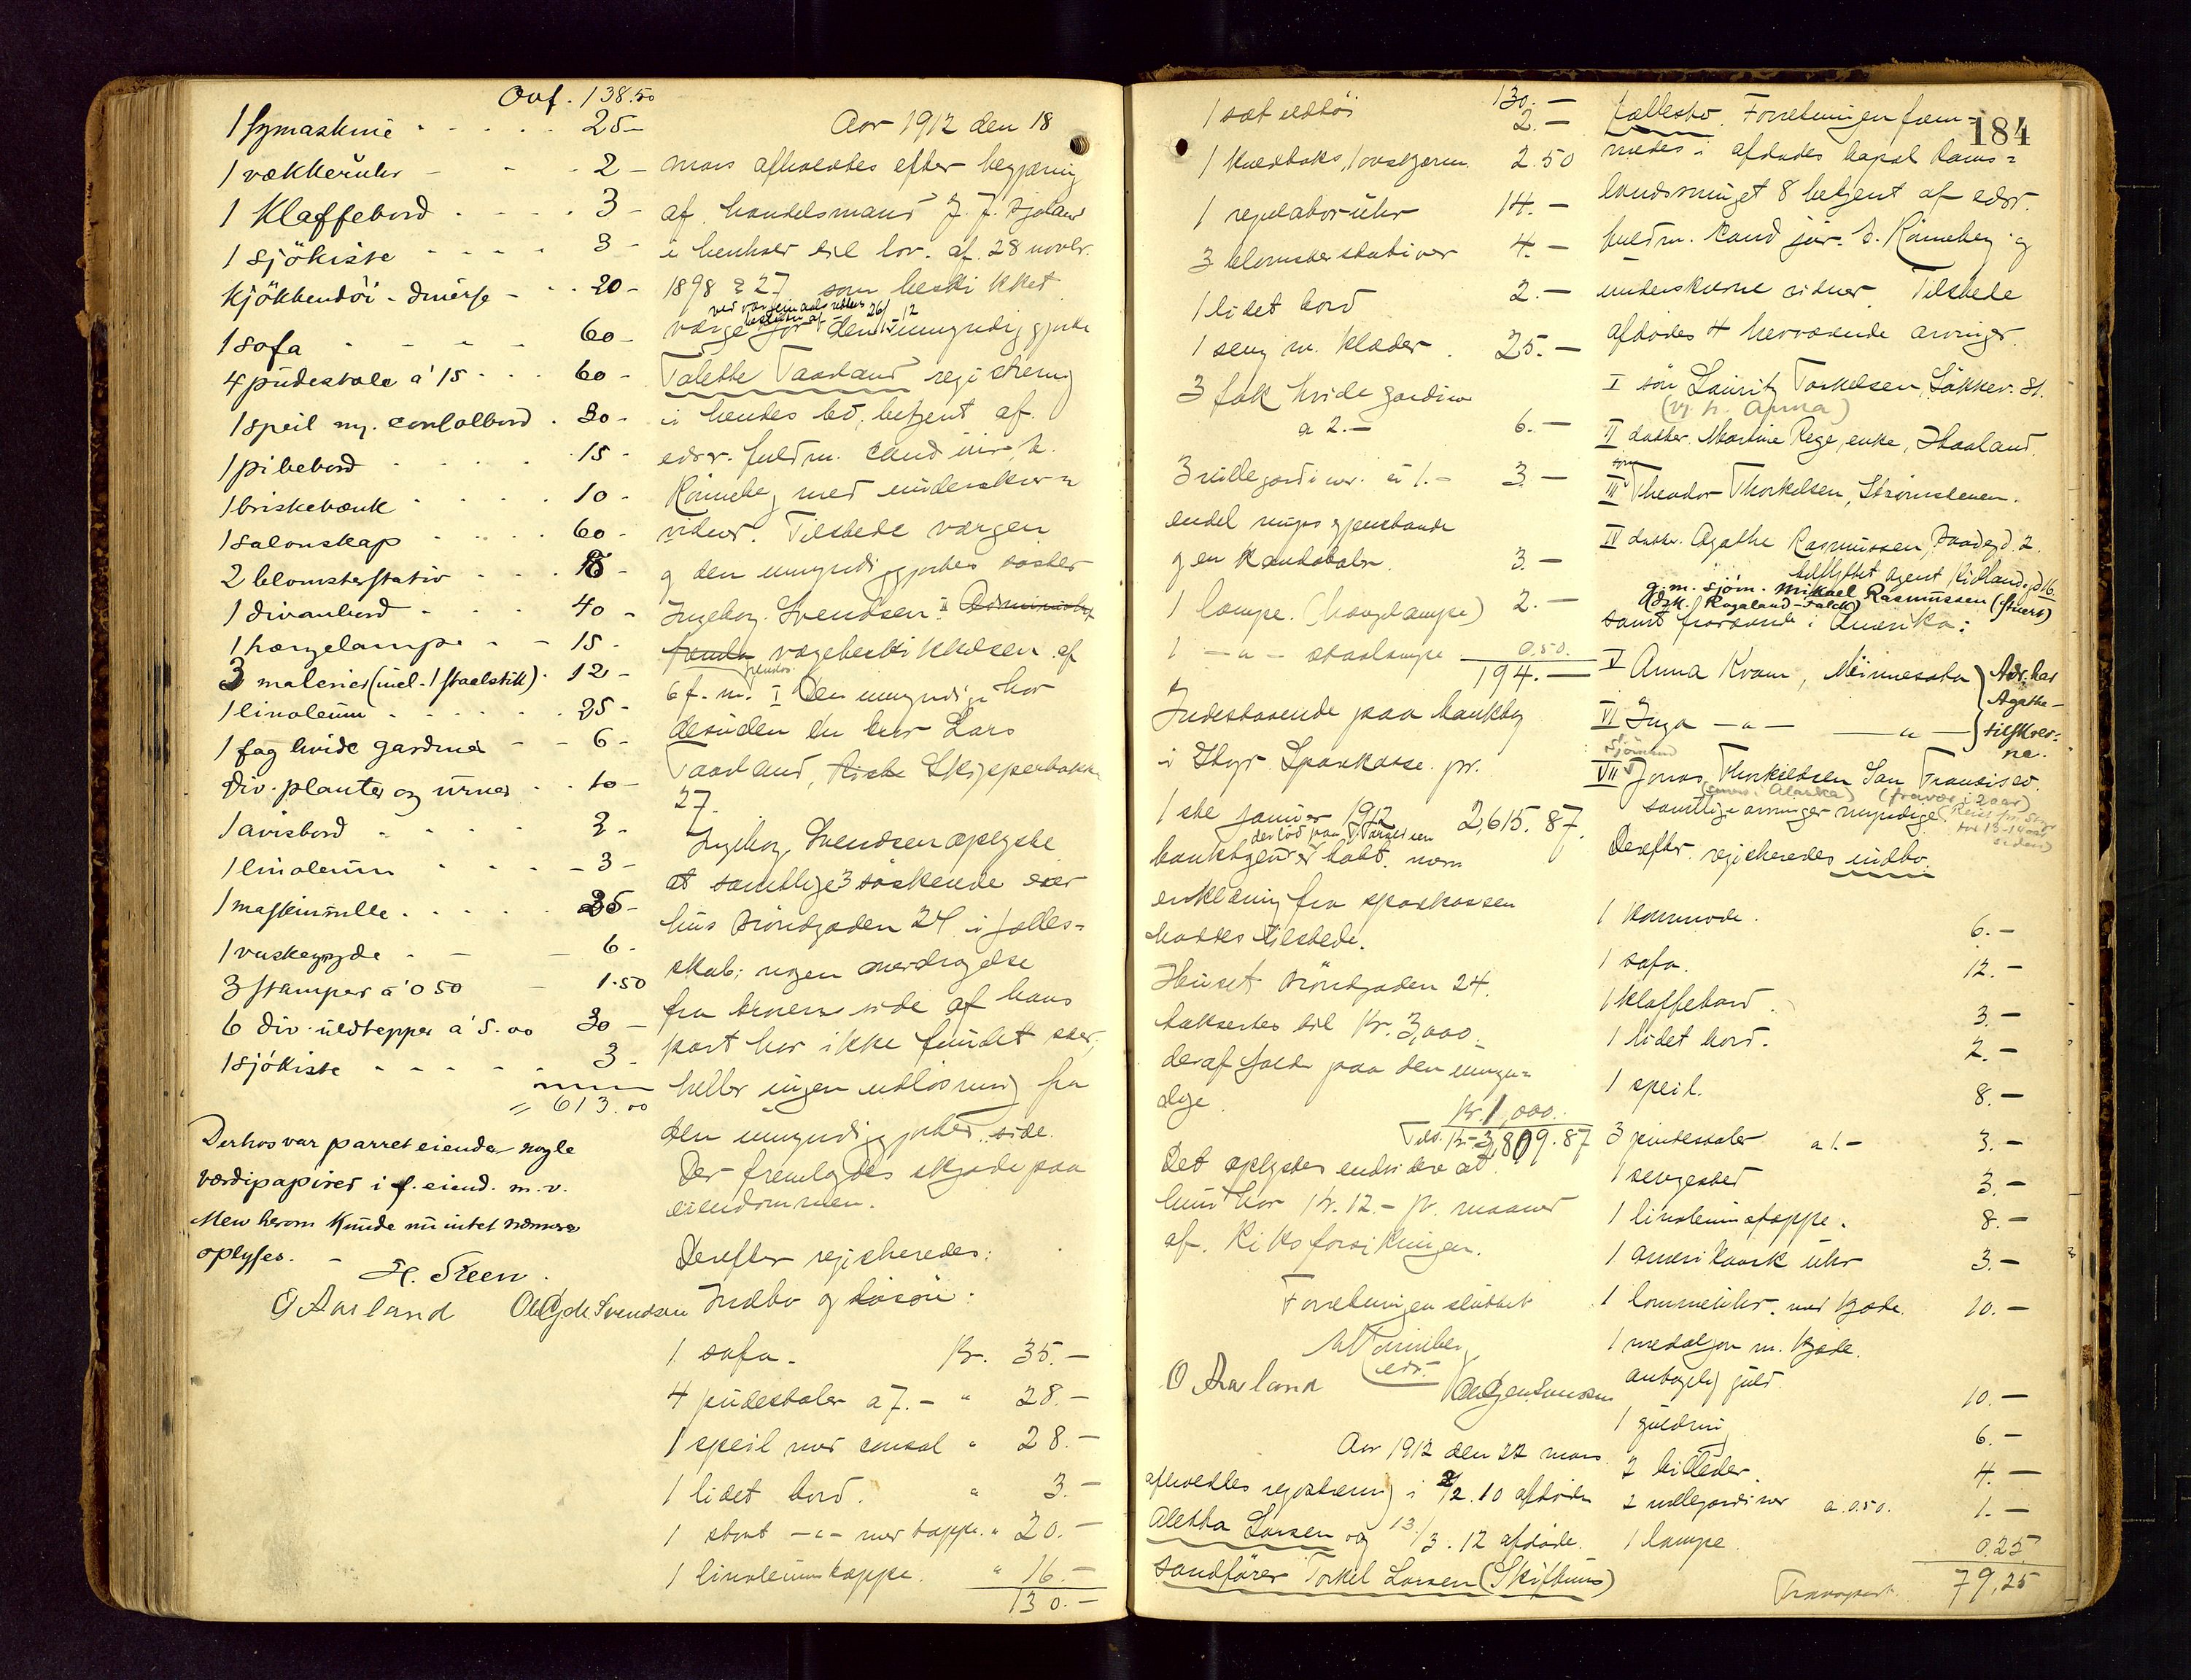 Ovf. 138.50
1 symaskine - - - - - 25 -
1 vækkeruhr - - - 2 -
1 Klaffebord - - - - 3 -
1 sjökiste - - - - 3 -
Kjökkentöi - diverse - - - 20 -
1 sofa - - - - 60 -
4 püdestole a' 15 - - - 60 -
1 speil m. consolbord - 30 -
1 pibebord - - - - 15 -
1 briskebænk - - - - 10 -
1 salonskap - - - - 60 -
2 blomsterstativ - - - 18 -
1 divanbord - - - 40 -
1 hængelampe - - 15 -
3 malerier (incl. 1 staalstik) - 12 -
1 linoleum - - - - 25 -
1 fag hvide gardiner - - 6 -
Div. planter og urner - - 10 -
1 avisbord - - - - 2 -
1 linoleum - - - 3 -
1 maskinrulle - - - - 35 -
1 vaskegryde - - - 6 -
3 stamper a' 0 50 - 1.50
6 div. uldtepper a' 5.00 30 -
1 sjökiste - - - - - 3 -
= 613.00
Derhos var parret eiende nogle
værdipapirer i f. eiend. m. v.
Men herom kunde nu intet nærmere
oplyses. -
H. Steen.
O Aarland
Aar 1912 den 18
mars afholdtes efter begjæring
af handelsmand J. J.
i henhold til lov. af 28 novbr.
1898 § 27 som beskikket
ved værgemaalsrettens
beslutn. af 26/1 - 12
værge for den umyndiggjorte
Talette Taarland registrering
i hendes bo, betjent af
edsv. fuldm. cand jur. h.
Rönneberg med underskrevne
vidner. Tilstede værgen
og den umyndiggjortes söster
Ingeborg Svendsen.
værgebeskikkelsen af
6 f. m. I Den umyndige har
desuden en bror Lars
Taarland, Skipperbakke
27.
Ingeborg Svendsen oplyste
at samtlige 3 söskende eier
hus Bröndgaden 24 i fælles-
skab; nogen overdragelse
fra broren side af hans
part har ikke fundet sted,
heller ingen utlösning fra
den umyndiggjortes side.
Der fremlagdes skjöde paa
eiendommen.
Derefter registreredes:
Indbo og lösöre.
1 sofa. Kr. 35. -
4 püdestoler a 7. - " 28. -
1 speil med consol " 28. -
1 lidet bord. " 3. -
1 stort - " - med tæppe. " 20. -
1 linoleumstæppe. " 16. -
130. -
130. -
1 sæt ildtöi 2. -
1 kulboks, 1 ovnskjerm 2.50
1 regulatoruhr 14. -
3 blomsterstativer 4. -
1 lidet bord 2. -
1 seng m. klæder 25. -
3 fak hvide gardiner
a 2. - 6. -
3 rullegardiner a 1. - 3. -
endel nips gjenstande
og en kandelaber. 3. -
1 lampe. (hænglampe) 2. -
1 - " - staalampe 0.50.
194. -
Indestaaende paa bankbog
i Stvgr. Sparkasse pr.
1ste januar 1912 2,615.87.
erklæring fra sparkassen
havdes tilstede.
Huset Bröndgaden 24.
taksertes til Kr. 3,000.
deraf falder paa den umyn=
dige Kr. 1,000.
Tils. Kr. 3,809.87
Det oplystes endvidere at
hun har Kr. 12. - pr. maaned
af Riksforsikringen.
Forretningen sluttet
O Aarland
Aar 1912 den 22 mars
afholdtes registrering i 2/2.10 afdöde
Aletta Larsen og 13/3.12 afdöde
sandförer Torkel Larsen (Skifteums)
184
fællesbo. Forretningen frem-
underskrevne vidner. Tilstede
afdödes 4 herværende arvinger.
I sön Lauritz Torkelsen, Løkkev. 81.
II datter Martine Rege, enke, Haaland.
sön
III Theodor Thorkelsen, Strömstenen.
IV datter Agathe Rasmussen, Baadegd. 2.
g. m. sjöm. Mikael Rasmussen (stuert)
(Dsk. Rogaland - Falck)
samt fraværende i Amerika:
V Anna Kvam, Minnesota
VI Inga - " - - " -
Adr. har
Agathe -
tilskrev-
ne.
Sjömand
VII Jonas Thorkildsen San Francisco.
(enes i Alaska) (fravær i 2 aar)
samtlige arvinger myndige.
Derefter registreredes indbo.
1 kommode. 6. -
1 sofa. 12. -
1 klaffebord. 3. -
1 lidet bord. 2. -
1 speil. 8. -
3 pindestoler a 1. - 3. -
1 sengested 3. -
1 linoleumstæppe. 8. -
1 amerikansk uhr 3. -
1 lommeuhr. med kjæde. 10. -
1 medaljon m. kjæde.
antagelig guld. 10. -
1 guldring 6. -
2 billeder. 4. -
2 rullegardiner a 0.50. 1. -
1 lampe. 0.25
Transport. 79,25